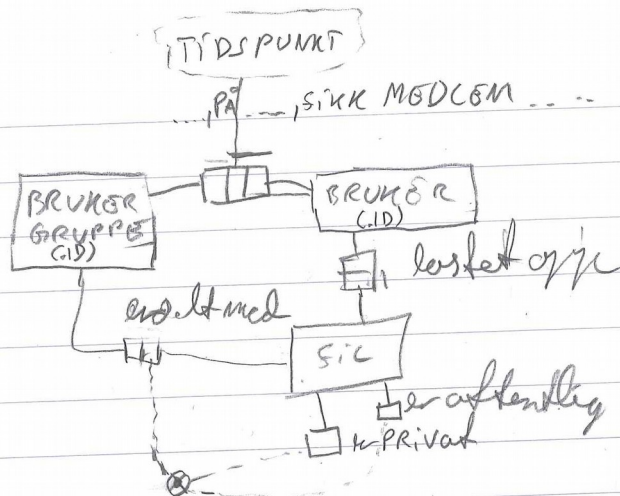 TIDSPUNKT
...., PÅ ...., FIKK MEDLEM ....
BRUKER
GRUPPE
(.ID)
BRUKER
(.ID)
lastet opp
delt med
FIL
er offentlig
er PRIVAT